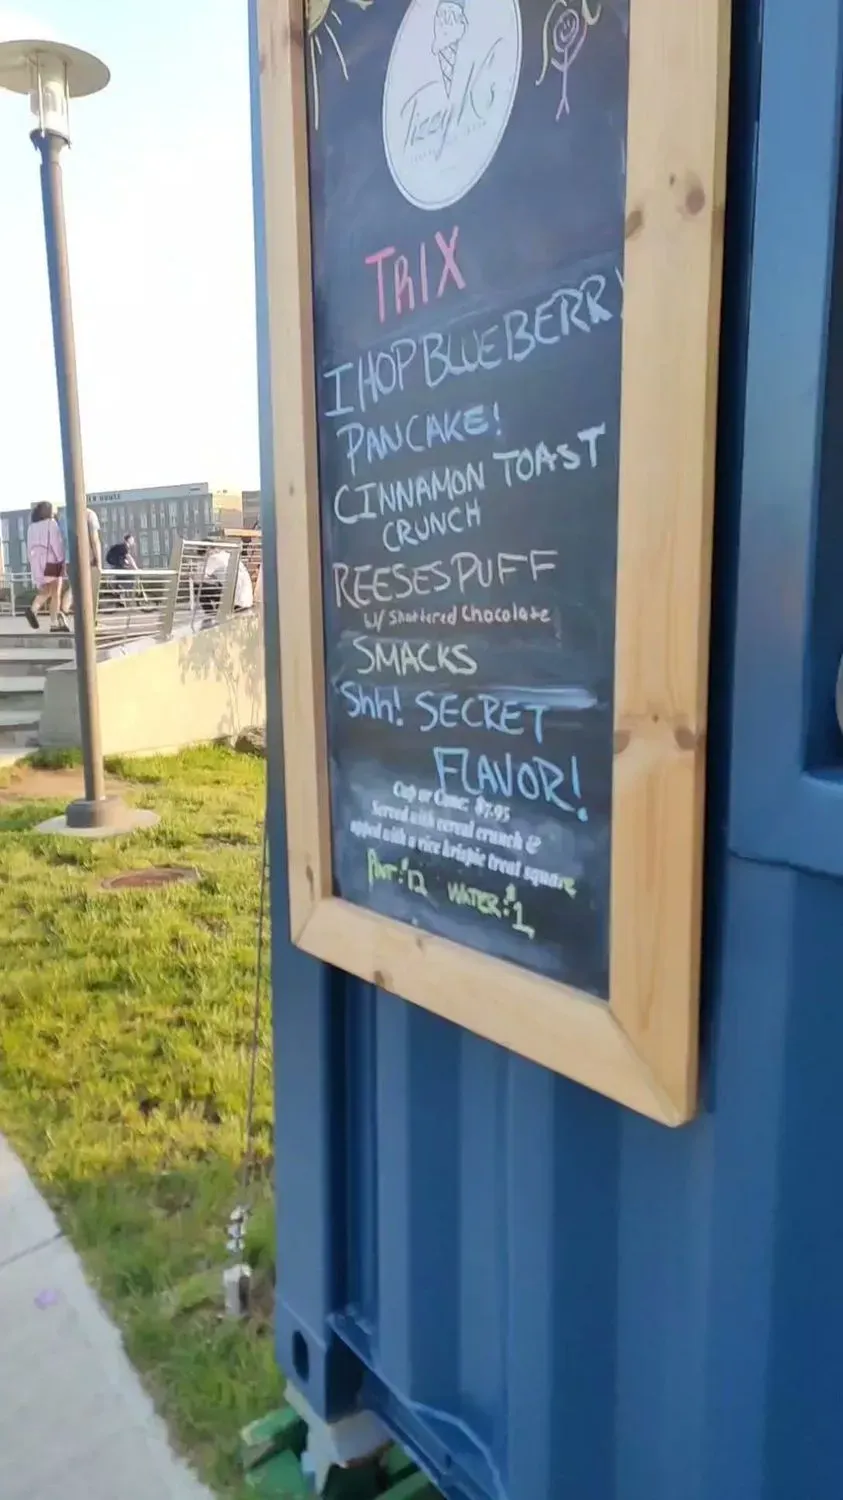 Tizzy K's
TRIX
IHOP BLUEBERRY
PANCAKE!
CINNAMON TOAST
CRUNCH
REESES PUFF
w/ Shattered Chocolate
SMACKS
Shh! SECRET
FLAVOR!
Cup or Cone: $7.95
Served with cereal crunch &
topped with a rice krispie treat square
PINT: $12 WATER: $1
HOUSE